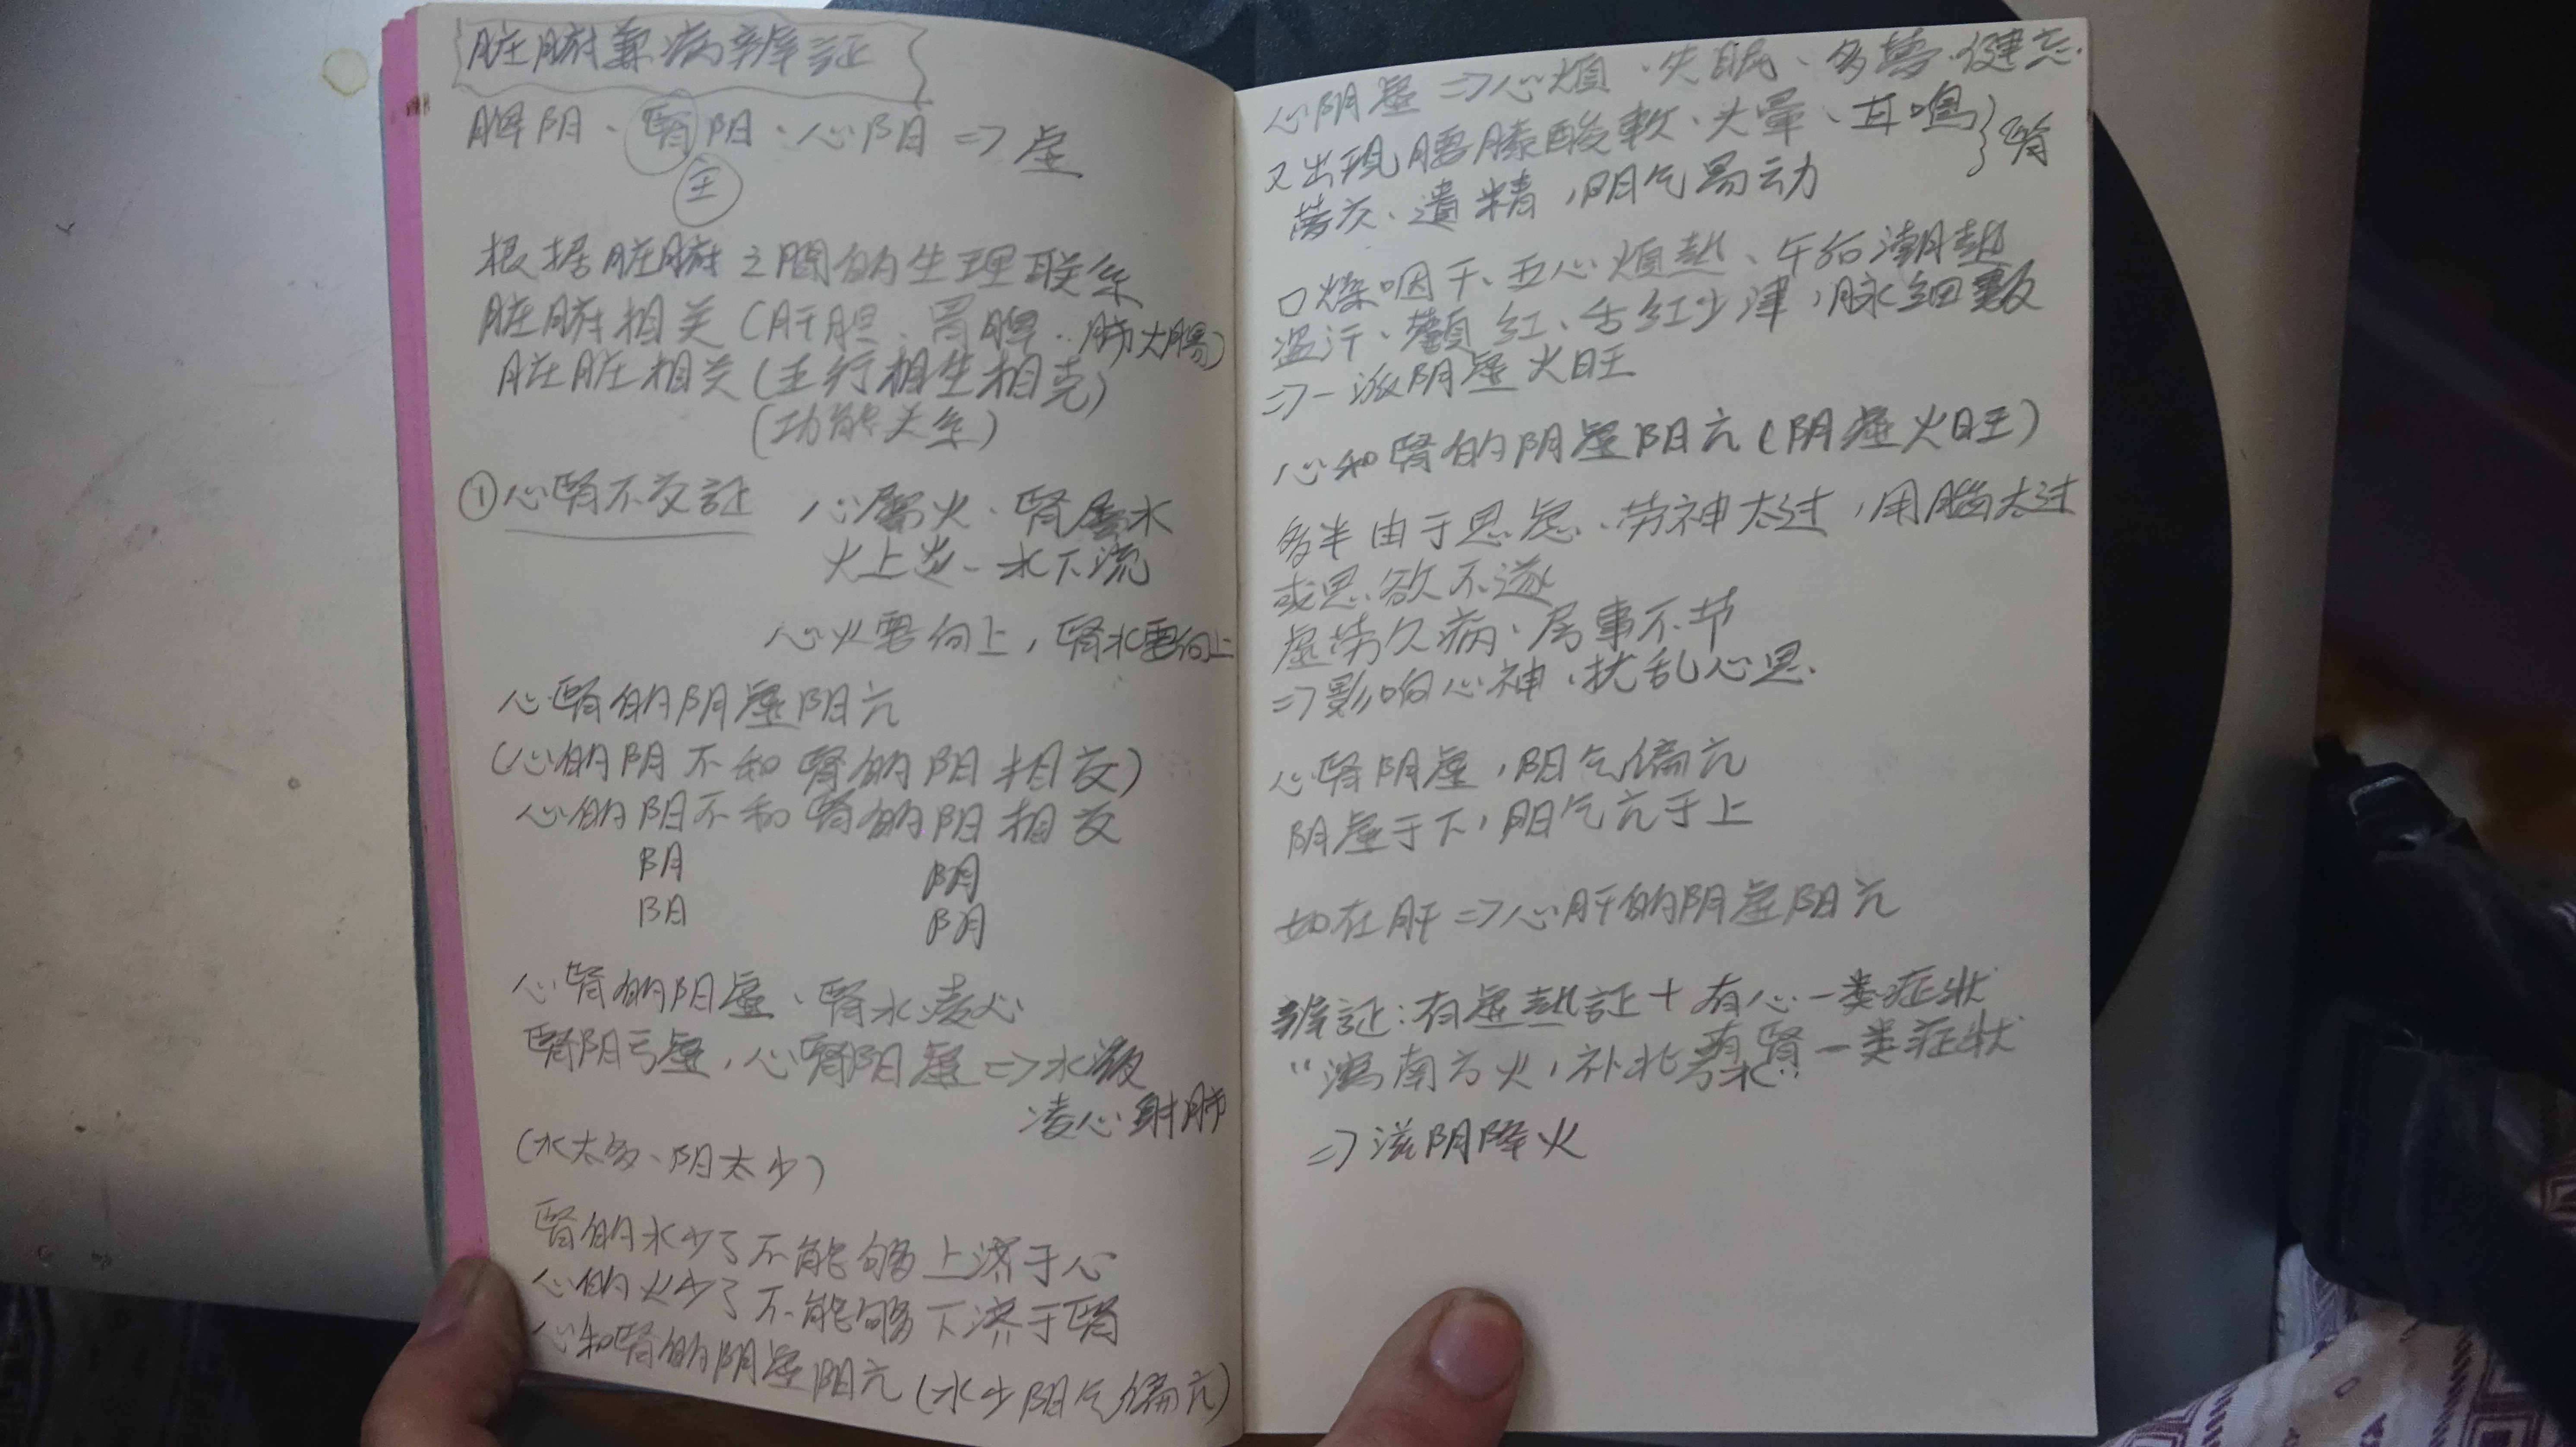 脏腑兼病辨証
脾阳、腎阳、心阳 => 虚
主
根据脏腑之間的生理联系
脏腑相关(肝胆、胃脾..肺大腸)
脏脏相关(五行相生相克)
(功能关系)
①心腎不交証 心属火、腎属水
火上炎、水下流
心火要向上,腎水要向上
心腎的阴虚阳亢
(心的阴不和腎的阳相交)
心的阳不和腎的阳相交
阴 阴
阳 阴
心腎的阳虚、腎水凌心
腎阴亏虚,心腎阳虚 => 水液
凌心射肺
(水太多、阳太少)
腎的水少了不能够上济于心
心的火少了不能够下济于腎
心和腎的阴虚阳亢(水少阳气偏亢)
心阴虚 => 心煩、失眠、多夢、健忘
又出現腰膝酸軟、头暈、耳鳴 } 腎
夢交、遺精,阳气易动
口燥咽干、五心煩熱、午后潮熱
盗汗、顴红、舌红少津,脉細數
=> 一派阴虚火旺
心和腎的阴虚阳亢(阴虚火旺)
多半由于思慮、劳神太过,用腦太过
或思欲不遂
虚劳久病、房事不节
=> 影响心神、扰乱心思.
心腎阴虚,阳气偏亢
阴虚于下,阳气亢于上
如在肝 => 心肝的阴虚阳亢
辨証:有虚熱証 + 有心一类症状
有腎一类症状
“瀉南方火,补北方水”
=> 滋阴降火